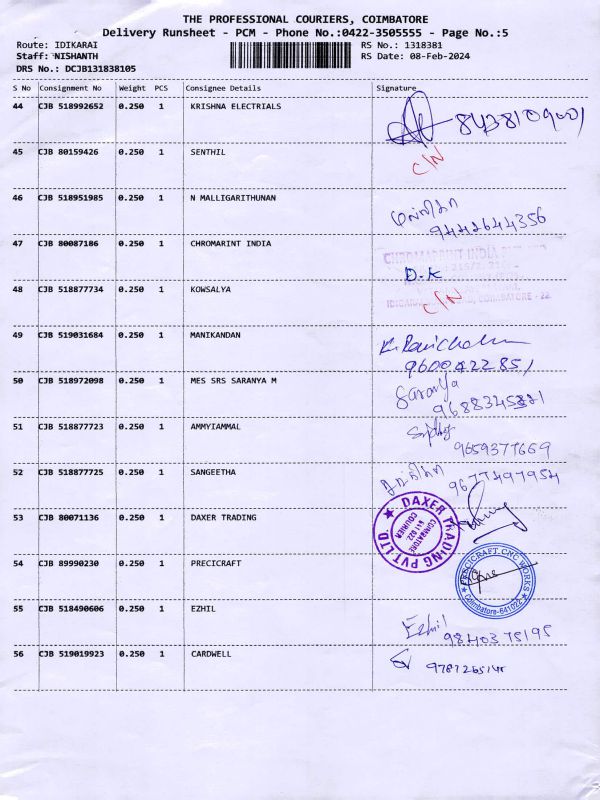 THE PROFESSIONAL COURIERS, COIMBATORE
Delivery Runsheet - PCM - Phone No.:0422-3505555 - Page No.:5
Route: IDIKARAI RS No.: 1318381
Staff: NISHANTH RS Date: 08-Feb-2024
DRS No.: DCJB131838105
S No Consignment No Weight PCS Consignee Details Signature
44 CJB 518992652 0.250 1 KRISHNA ELECTRIALS 8438109001
45 CJB 80159426 0.250 1 SENTHIL C/N
46 CJB 518951985 0.250 1 N MALLIGARITHUNAN
9442644356
47 CJB 80087186 0.250 1 CHROMARINT INDIA CHROMAPRINT INDIA
D.K
48 CJB 518877734 0.250 1 KOWSALYA C/N
COIMBATORE - 22
49 CJB 519031684 0.250 1 MANIKANDAN
9600422851
50 CJB 518972098 0.250 1 MES SRS SARANYA M Saranya
51 CJB 518877723 0.250 1 AMMYIAMMAL
9659377669
52 CJB 518877725 0.250 1 SANGEETHA 9677497954
53 CJB 80071136 0.250 1 DAXER TRADING DAXER TRADING PVT LTD
COIMBATORE
641 022
COURIER
54 CJB 89990230 0.250 1 PRECICRAFT PRECICRAFT CNC WORKS
Coimbatore-641022
55 CJB 518490606 0.250 1 EZHIL Ezhil
9840375195
56 CJB 519019923 0.250 1 CARDWELL